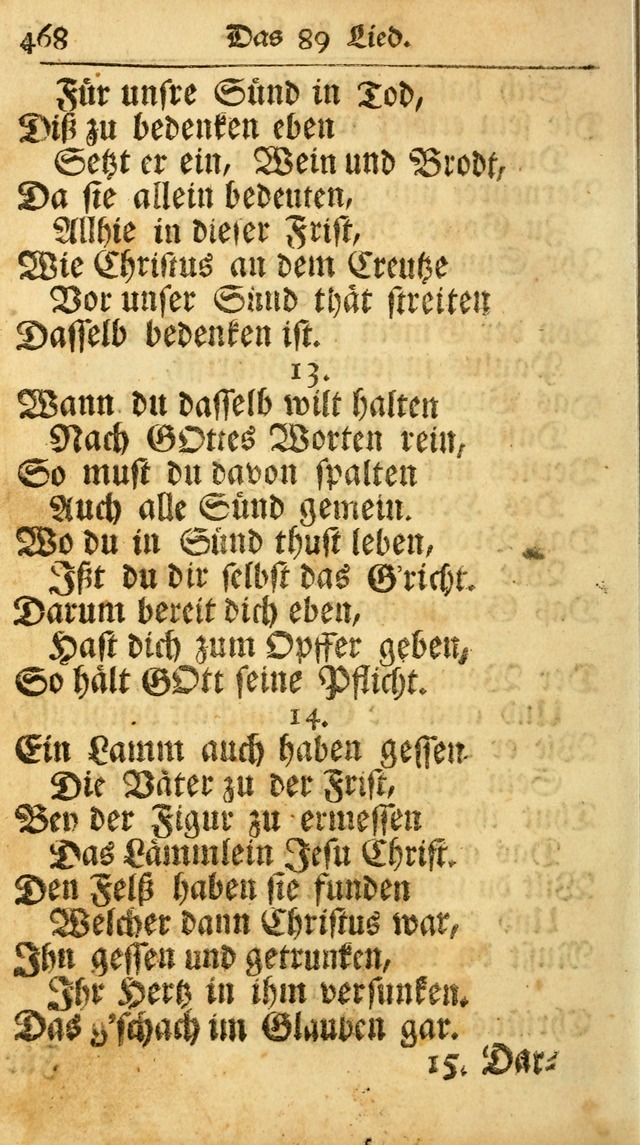 468 Das 89 Lied.
Für unsre Sünd in Tod,
Diß zu bedenken eben
Setzt er ein, Wein und Brodt,
Da sie allein bedeuten,
Allhie in dieser Frist,
Wie Christus an dem Creutze
Vor unser Sünd thät streiten
Dasselb bedenken ist.
13.
Wann du dasselb wilt halten
Nach GOttes Worten rein,
So must du davon spalten
Auch alle Sünd gemein.
Wo du in Sünd thust leben,
Ißt du dir selbst das G'richt.
Darum bereit dich eben,
Hast dich zum Opffer geben,
So hält GOtt seine Pflicht.
14.
Ein Lamm auch haben gessen
Die Väter zu der Frist,
Bey der Figur zu ermessen
Das Lämmlein Jesu Christ.
Den Felß haben sie funden
Welcher dann Christus war,
Ihn gessen und getrunken,
Ihr Hertz in ihm versunken.
Das g'schach im Glauben gar.
15. Dar-